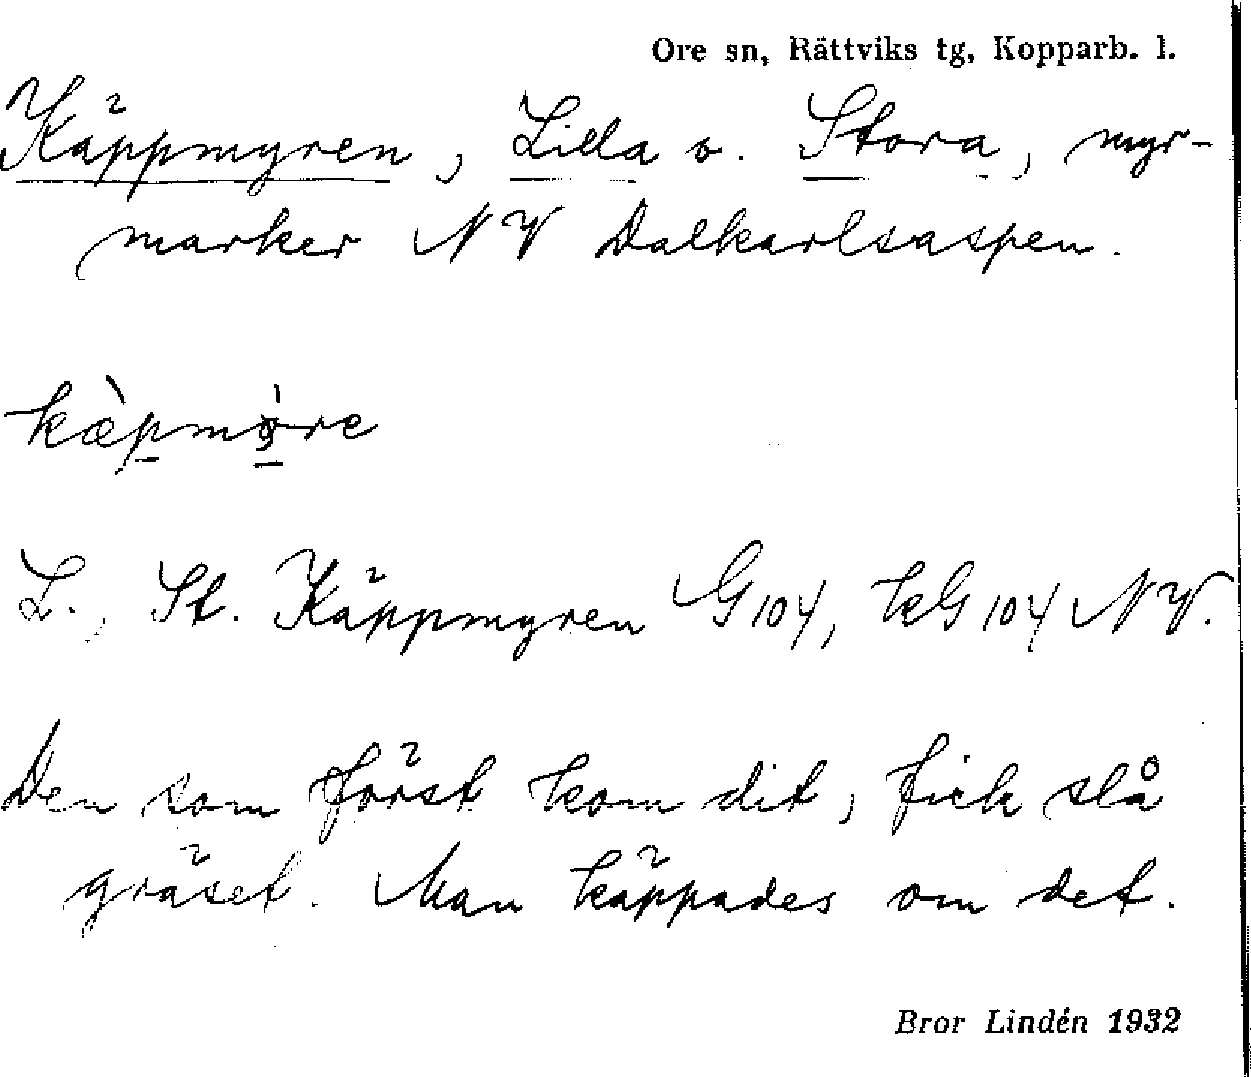 Ore sn, Rättviks tg, Kopparb. l.
Käppmyren, Lilla o. Stora, myr-
marker NV Dalkarlsaspen.
L., St. Käppmyren G 104, kG 104 NV.
Den som först kom dit, fick slå
gräset. Man käppades om det.
Bror Lindén 1932